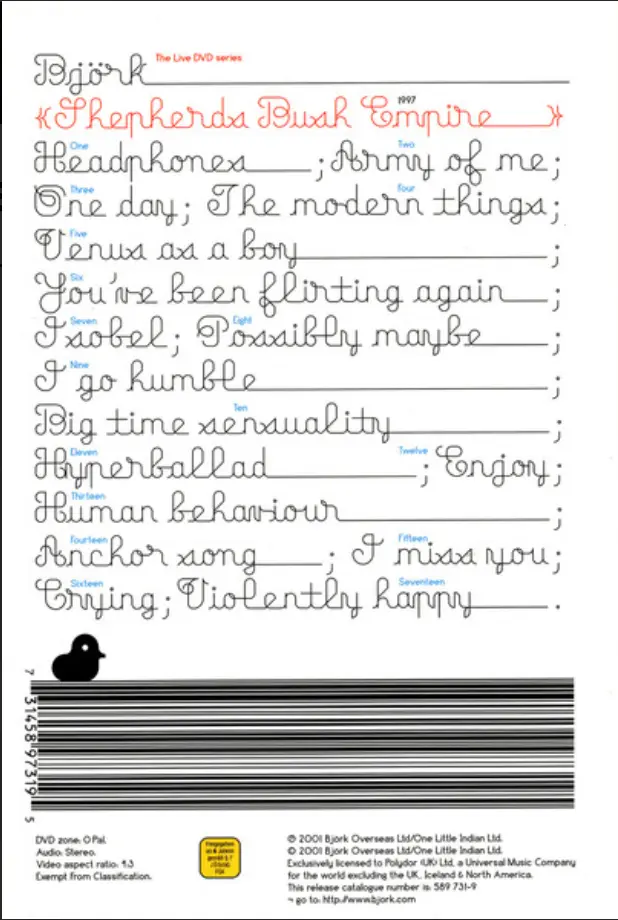 Björk The Live DVD series
«Shepherds Bush Empire 1997 »
One Two
Headphones ; Army of me;
Three Four
One day; The modern things;
Five
Venus as a boy ;
Six
You've been flirting again ;
Seven Eight
Isobel; Possibly maybe ;
Nine
I go humble ;
Ten
Big time sensuality ;
Eleven Twelve
Hyperballad ; Enjoy;
Thirteen
Human behaviour ;
Fourteen Fifteen
Anchor song ; I miss you;
Sixteen Seventeen
Crying; Violently happy .
7 31458 97319 5
DVD zone: 0 Pal.
Audio: Stereo.
Video aspect ratio: 4:3
Exempt from Classification.
℗ 2001 Bjork Overseas Ltd/One Little Indian Ltd.
© 2001 Bjork Overseas Ltd/One Little Indian Ltd.
Exclusively licensed to Polydor (UK) Ltd, a Universal Music Company
for the world excluding the UK, Iceland & North America.
This release catalogue number is: 589 731-9
¬ go to: http://www.bjork.com